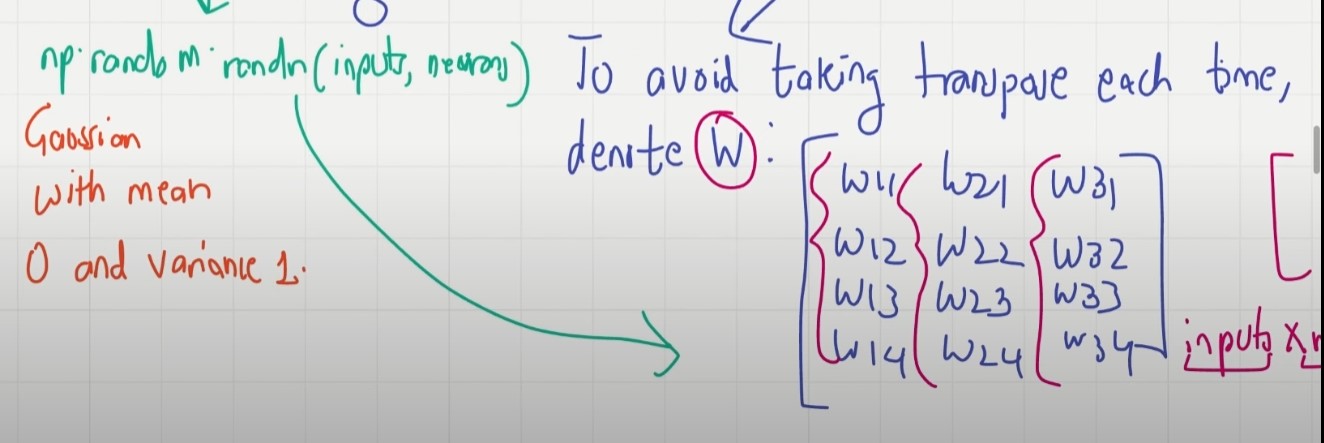 np.random.randn(inputs, neurons)
Gaussian
with mean
0 and variance 1.
To avoid taking transpose each time,
denote W:
W11 W21 W31
W12 W22 W32
W13 W23 W33
W14 W24 W34
inputs x